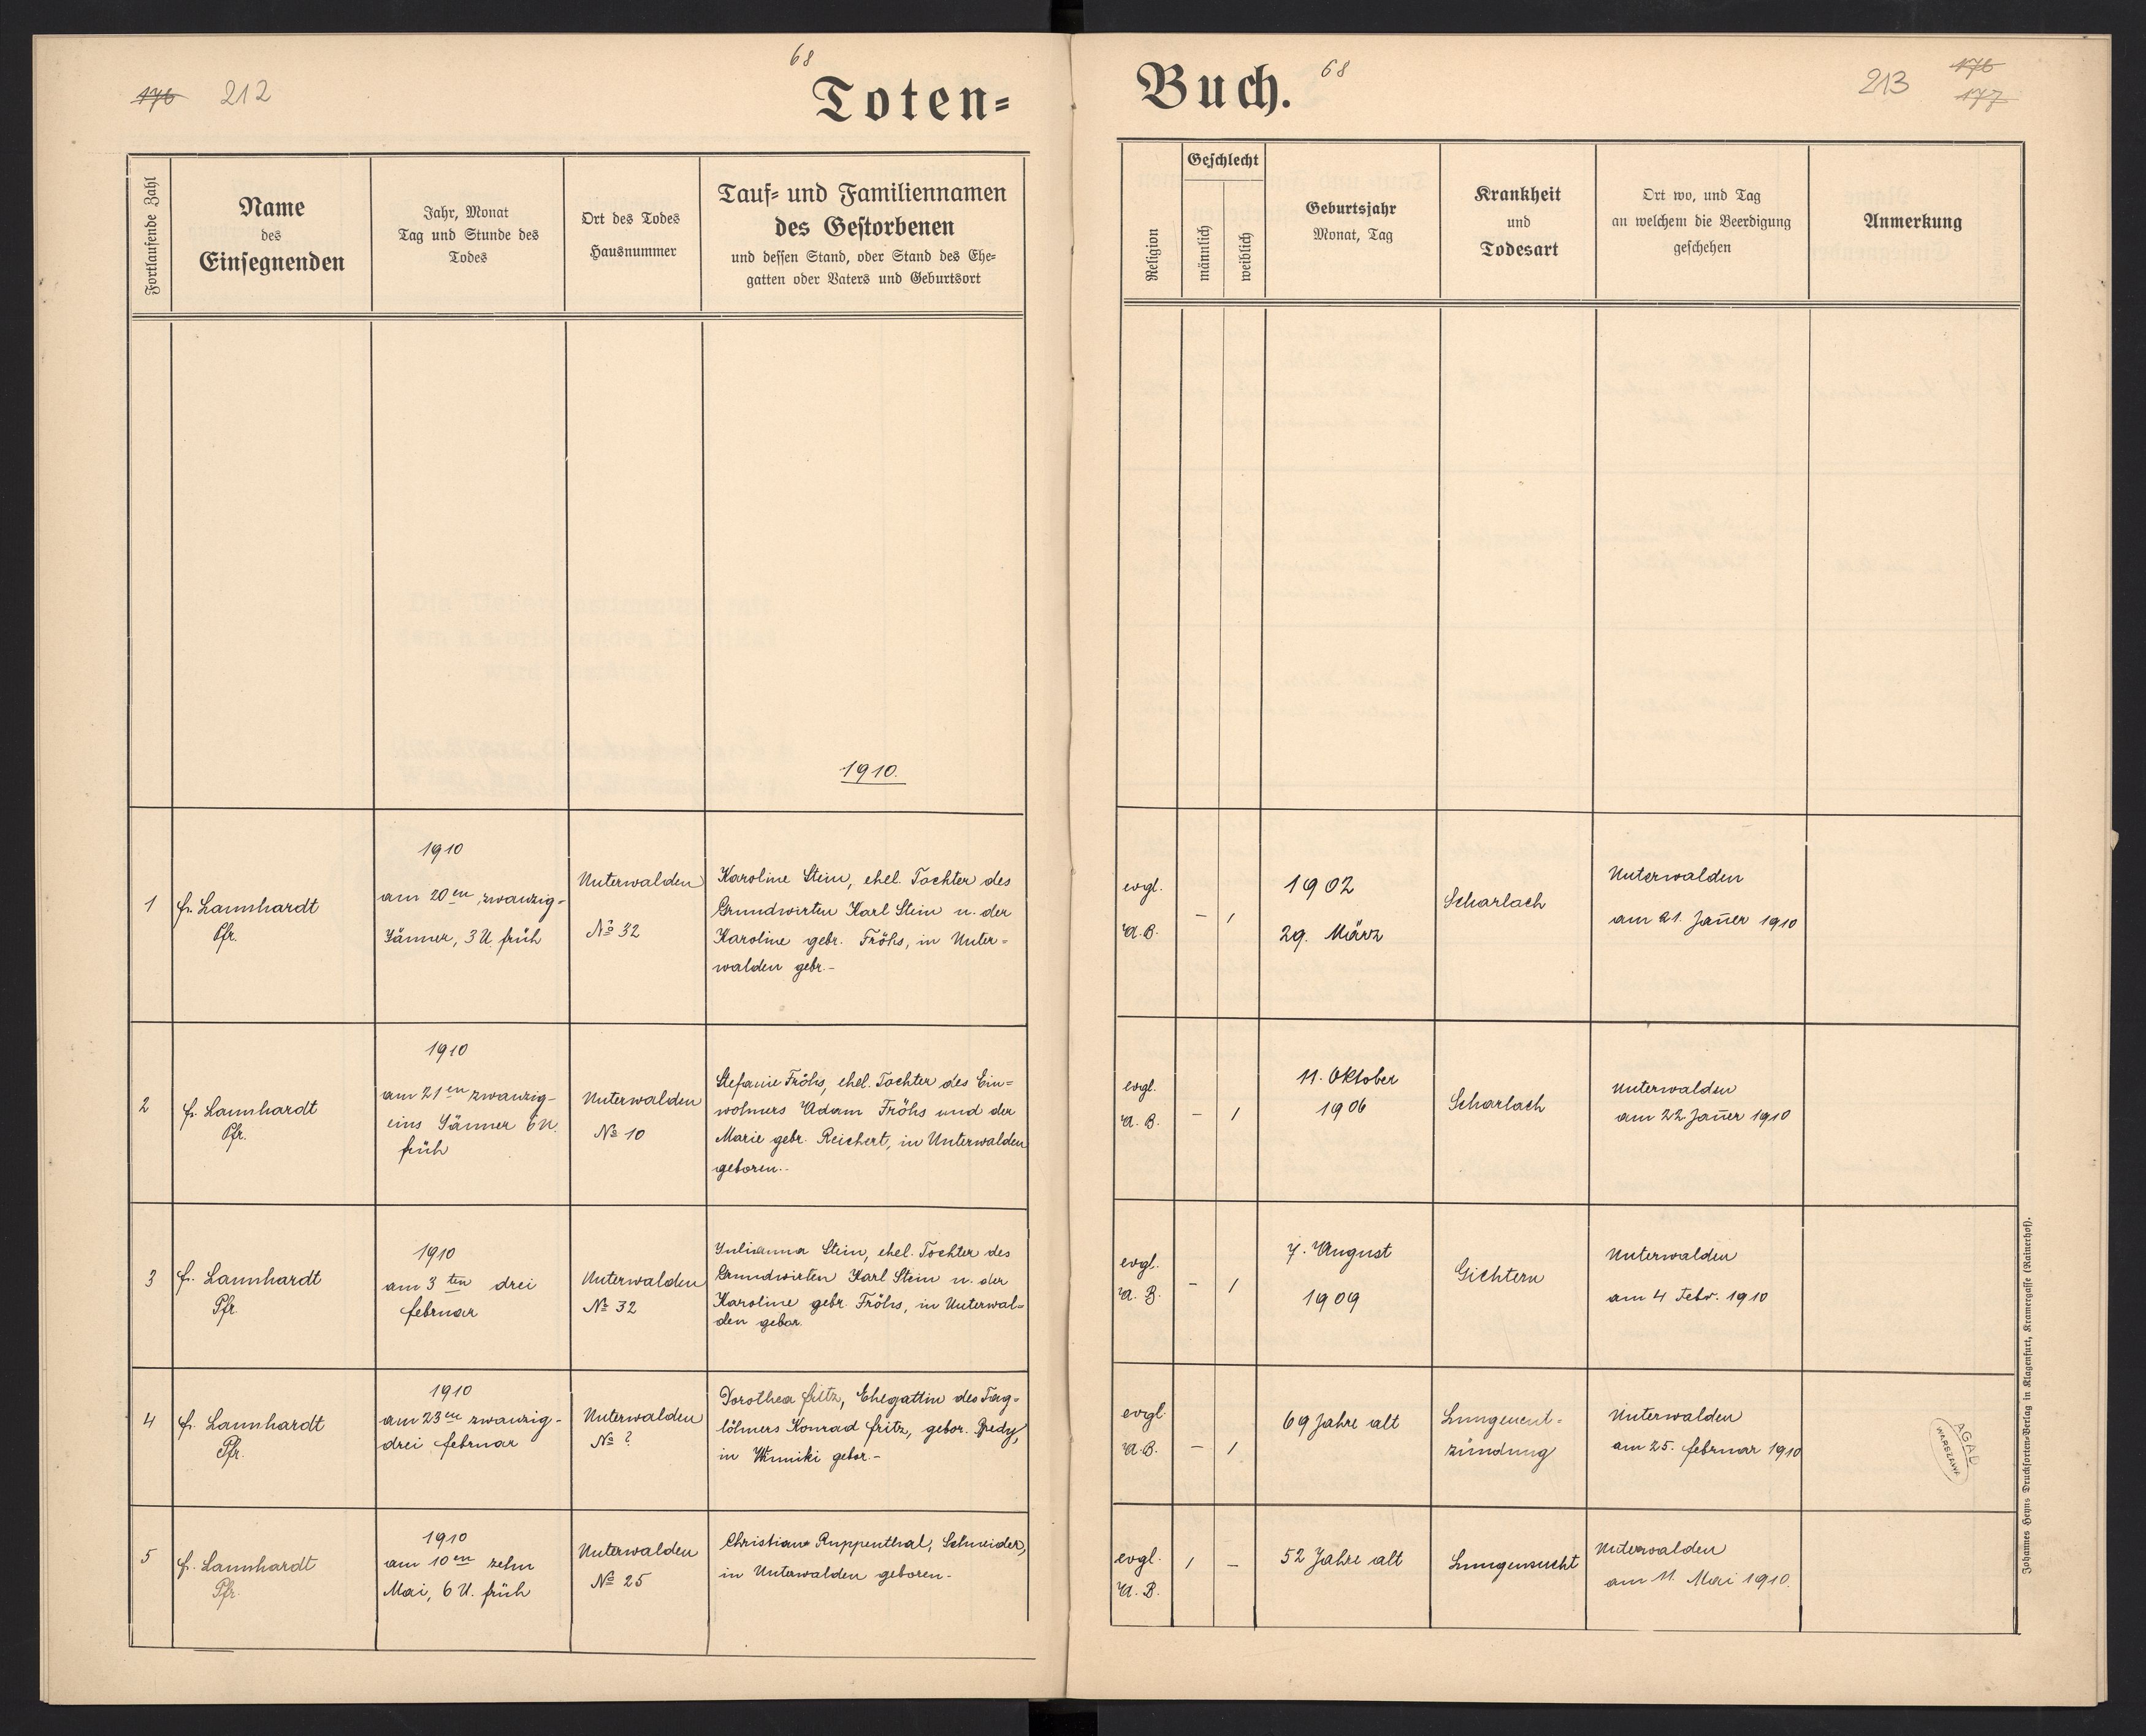 68
176 212
Toten=
Buch.
68
213
176
177
Fortlaufende Zahl
Name
des
Einsegnenden
Jahr, Monat
Tag und Stunde des
Todes
Ort des Todes
Hausnummer
Tauf= und Familiennamen
des Gestorbenen
und dessen Stand, oder Stand des Ehe=
gatten oder Vaters und Geburtsort
Religion
Geschlecht
männlich
weiblich
Geburtsjahr
Monat, Tag
Krankheit
und
Todesart
Ort wo, und Tag
an welchem die Beerdigung
geschehen
Anmerkung
1910.
1
fr. Lannhardt
Pfr.
1910
am 20en zwanzig-
Jänner, 3 U. früh
Unterwalden
No 32
Karoline Stein, ehel. Tochter des
Grundwirten Karl Stein u. der
Karoline gebr. Fröhs, in Unter=
walden gebr.-
evgl.
A.B.
- /
1902
29. März
Scharlach
Unterwalden
am 21. Jañer 1910
2
fr. Lannhardt
Pfr.
1910
am 21en zwanzig-
eins Jänner 6 U.
früh
Unterwalden
No 10
Stefanie Fröhs, ehel. Tochter des Ein=
wohners Adam Fröhs und der
Marie gebr. Reichert, in Unterwalden
geboren.-
evgl.
A.B.
- /
11. Oktober
1906
Scharlach
Unterwalden
am 22. Jañer 1910
3
fr. Lannhardt
Pfr.
1910
am 3ten drei
februar
Unterwalden
No 32
Julianna Stein, ehel. Tochter des
Grundwirten Karl Stein u. der
Karoline gebr. Fröhs, in Unterwal=
den gebor.
evgl.
A.B.
- /
7. August
1909
Gichtern
Unterwalden
am 4 Febr. 1910
4
fr. Lannhardt
Pfr.
1910
am 23en zwanzig-
drei februar
Unterwalden
No ?
Dorothea fritz, Ehegattin des Tag=
löhners Konrad fritz, gebor.
in Winniki gebor.-
evgl.
A.B.
- /
69 Jahre alt
Lungenent=
zündung
Unterwalden
am 25. februar 1910
AGAD
WARSZAWA
5
fr. Lannhardt
Pfr.
1910
am 10en zehn
Mai, 6 U. früh
Unterwalden
No 25
Christian Ruppenthal, Schneider,
in Unterwalden geboren-
evgl.
A.B.
/ -
52 Jahre alt
Lungensucht
Unterwalden
am 11. Mai 1910.
Johannes Heyns Drucksorten-Verlag in Klagenfurt, Kramergasse (Rainerhof).